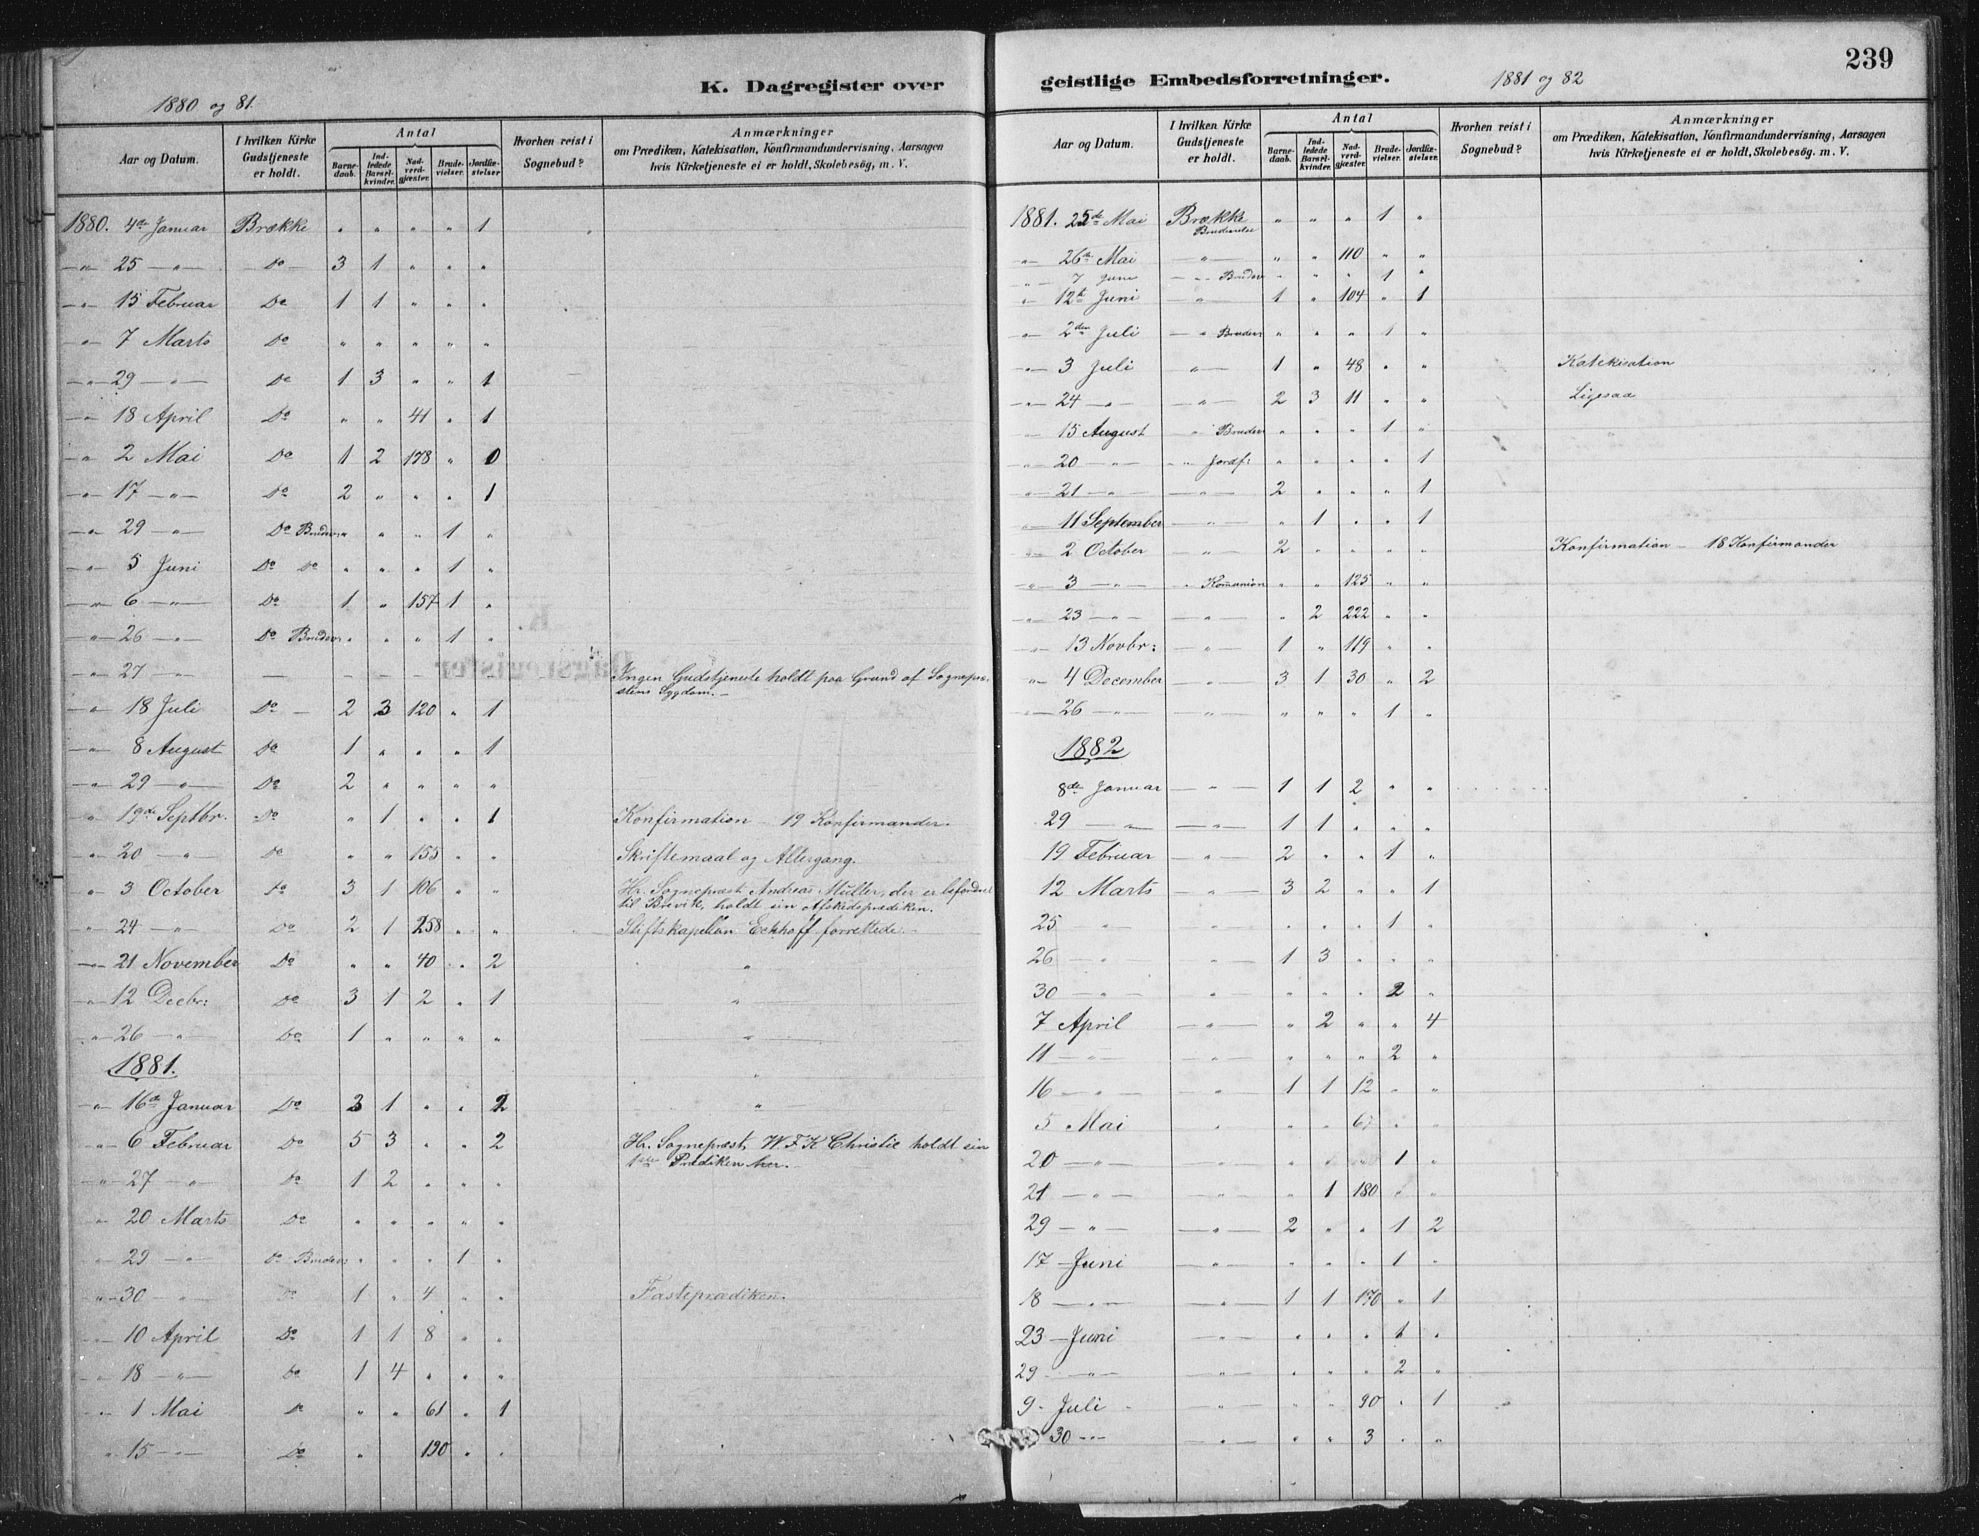 1880 og 81.
K. Dagregister over
Aar og Datum.
I hvilken Kirke Gudstjeneste er holdt.
Antal
Barnedaab.
Indledede Barselkvinder.
Nadverdgjæster.
Brudevielser.
Jordfæstelser
Hvorhen reist i Sognebud?
Anmærkninger
om Prædiken, Katekisation, Konfirmandundervisning, Aarsagen
hvis Kirketjeneste ei er holdt, Skolebesøg, m. V.
1880. 4de Januar Brække " " " " 1
" 25 " Do 3 1 " " "
" 15 Februar Do 1 1 " " "
" 7 Marts Do " " " " "
" 29 " Do 1 3 " " 1
" 18 April Do " " 41 " 1
" 2 Mai Do 1 2 178 " 0
" 17 " Do 2 " " " 1
" 29 " Do Brudev. " " " 1 "
" 5 Juni Do Do " " " 1 "
" 6 " Do 1 " 157 1 "
" 26 " Do Brudev. " " " 1 "
" 27 " — — — — Ingen Gudstjeneste holdt paa Grund af Sognepræ-
stens Sygdom.
" 18 Juli Do 2 3 120 " 1
" 8 August Do 1 " " " 1
" 29 " Do 2 " " " "
" 19de Septbr. Do " 1 " " 1 Konfirmation 19 Konfirmander.
" 20 " Do " " 155 " " Skriftemaal og Altergang.
" 3 October Do 3 1 106 " " Hr. Sognepræst Andreas Müller, der er befordret
til Brevik, holdt sin Afskedsprædiken.
" 24 " Do 2 1 258 " " Stiftskapellan Eckhoff forrettede.
" 21 November Do " " 40 " 2 "
" 12 Decbr: Do 3 1 2 " 1 "
" 26 " Do 1 " " " " "
1881. "
" 16de Januar Do 3 1 " " 2 "
" 6 Februar Do 5 3 " " 2 Hr. Sognepræst W F K Christie holdt sin
1ste Prædiken her.
" 27 " Do 1 2 " " "
" 20 Marts Do " " " " "
" 29 " Do Brudev " " " 1 "
" 30 " Do 1 " 4 " " Fasteprædiken.
" 10 April Do 1 1 8 " "
" 18 " Do 1 4 " " "
" 1 Mai Do " " 61 " 1
" 15 " Do " 190 " "
239
1881 og 82
geistlige Embedsforretninger.
Aar og Datum.
I hvilken Kirke Gudstjeneste er holdt.
Antal
Barnedaab.
Indledede Barselkvinder.
Nadverdgjæster.
Brudevielser.
Jordfæstelser.
Hvorhen reist i Sognebud?
Anmærkninger
om Prædiken, Katekisation, Konfirmandundervisning, Aarsagen
hvis Kirketjeneste ei er holdt, Skolebesøg. m. V.
1881. 25de Mai Brække " " " 1 "
" 26de Mai " " " 110 " "
" 7 Juni " Brudev " " " 1 "
" 12te Juni " 1 " 104 " 1
" 2den Juli " Brudev " " " 1 "
" 3 Juli " 1 " 48 " " Katekisation
" 24 " " 2 3 11 " " Ligesaa
" 15 August " Brudev " " " 1 "
" 20 " " Jordf: " " " " 1
" 21 " " 2 " " " 1
" 11 September " " 1 " " 1
" 2 October " 2 " " " " Konfirmation — 18 Konfirmander
" 3 " " Komunion " " 125 " "
" 23 " " " 2 222 " "
" 13 Novbr: " 1 " 119 " "
" 4 December " 3 1 30 " 2
" 26 " " " " " 1 "
1882
8de Januar " 1 1 2 " "
29 " " 1 1 " " "
19 Februar " 2 " " 1 "
12 Marts " 3 2 " " 1
25 " " " " 1 "
26 " " 1 3 " " "
30 " " " " " 2 "
7 April " " 2 " " 4
11 " " " " " 2 "
16 " " 1 1 12 " "
5 Mai " " " " "
20 " " " " 1 "
21 " " " 1 180 " "
29 " " 2 " " 1 2
17 Juni " " " " 1 "
18 " " 1 1 170 " 1
23 Juni " " " " 1 "
29 " " " " " 2 "
9 Juli " " " 90 " 1
30 " " " " 3 " "